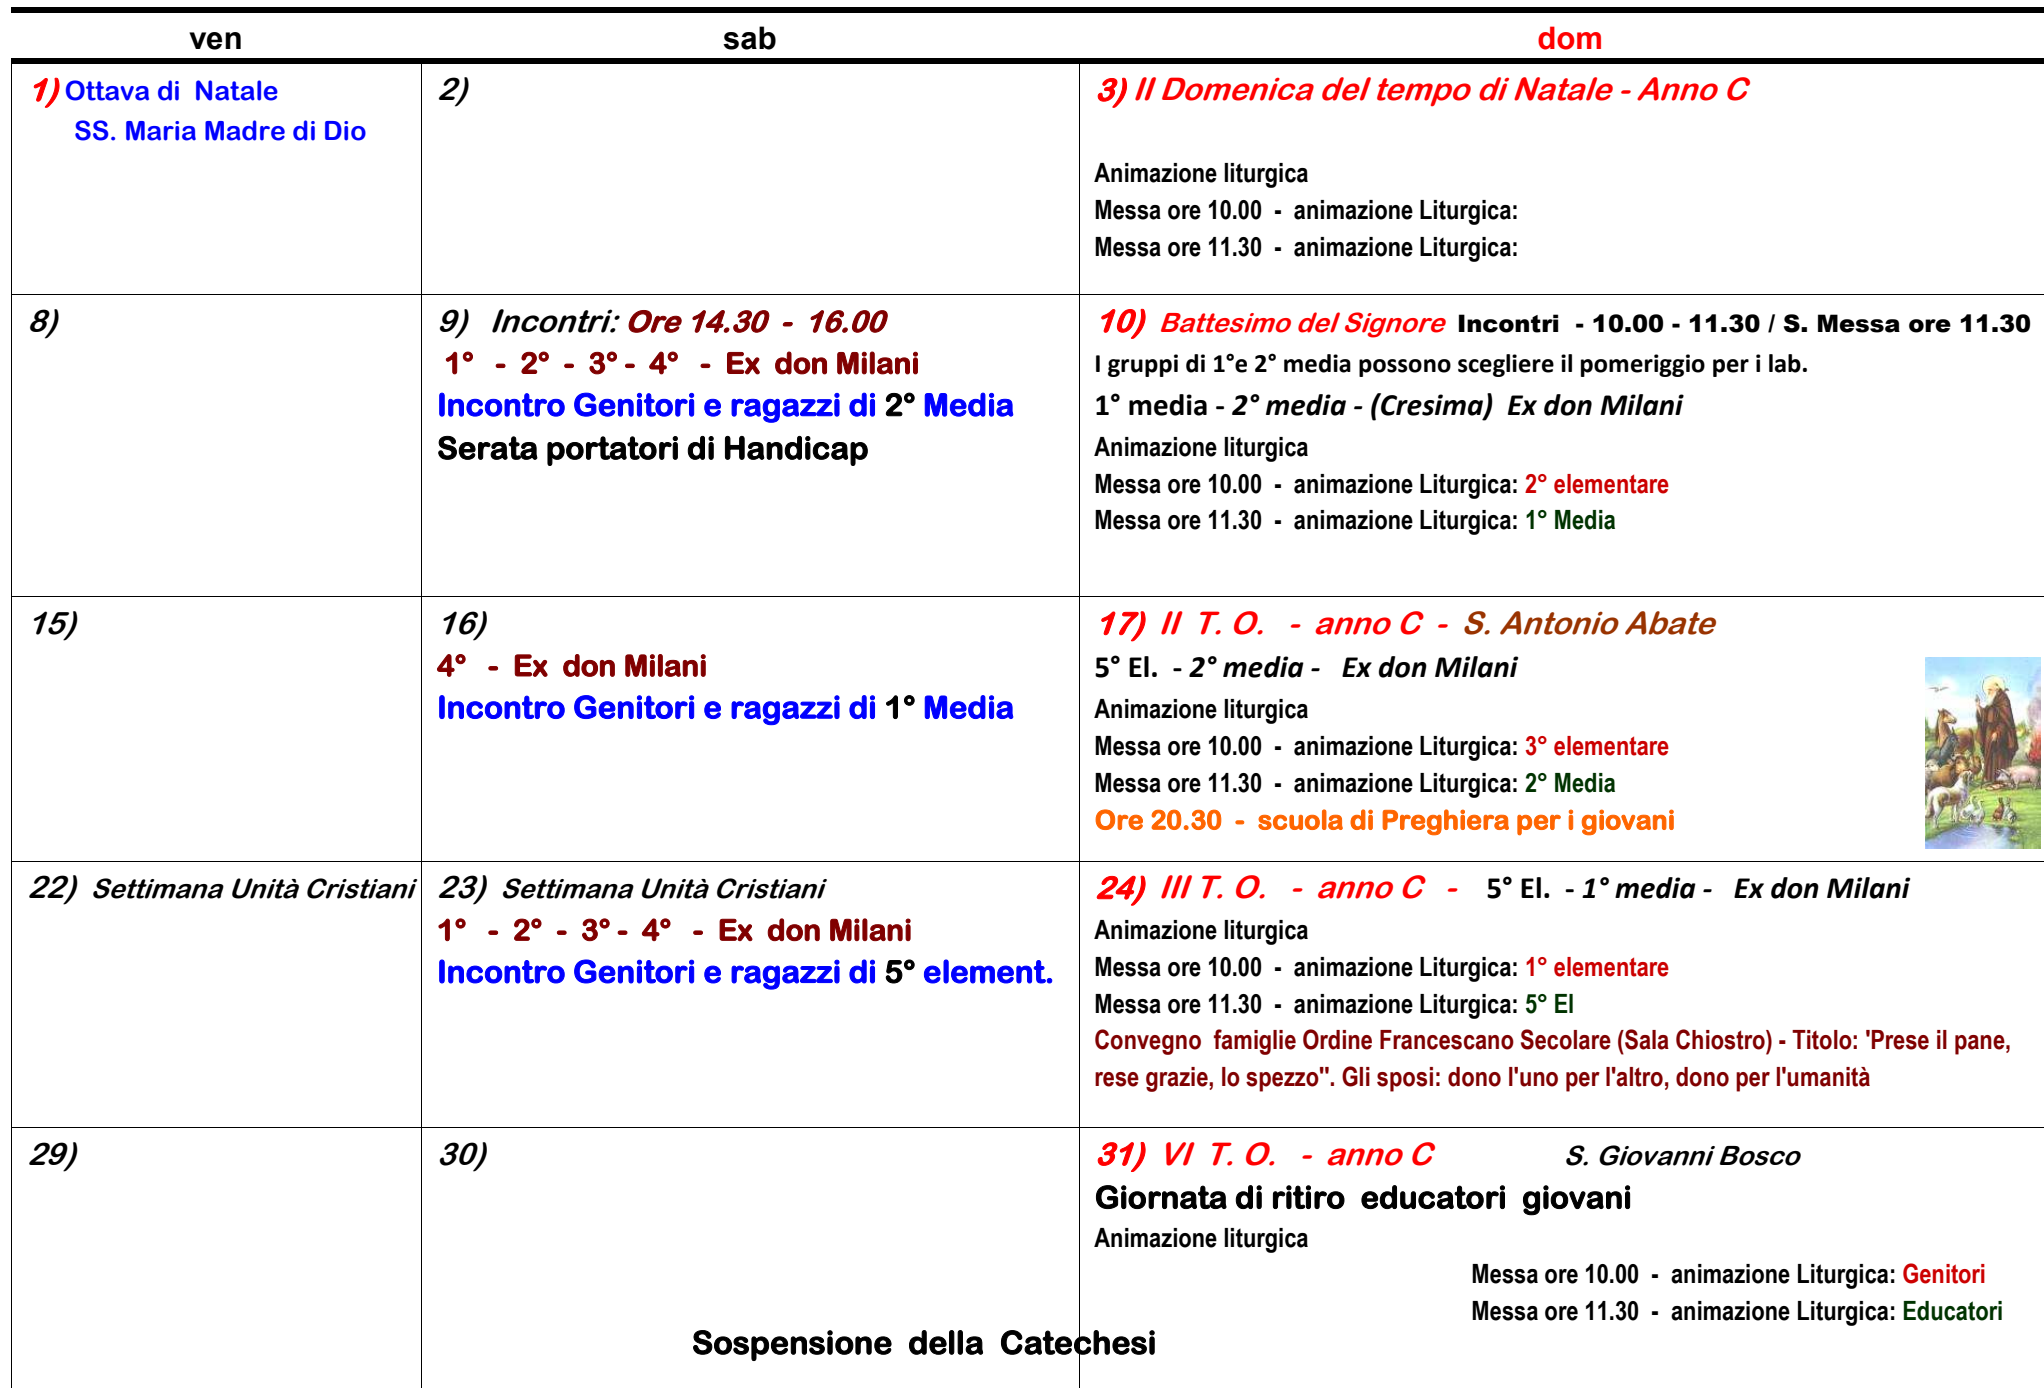 ven sab dom
1) Ottava di Natale
SS. Maria Madre di Dio
2)
3) II Domenica del tempo di Natale - Anno C
Animazione liturgica
Messa ore 10.00 - animazione Liturgica:
Messa ore 11.30 - animazione Liturgica:
8)
9) Incontri: Ore 14.30 - 16.00
1° - 2° - 3° - 4° - Ex don Milani
Incontro Genitori e ragazzi di 2° Media
Serata portatori di Handicap
10) Battesimo del Signore Incontri - 10.00 - 11.30 / S. Messa ore 11.30
I gruppi di 1°e 2° media possono scegliere il pomeriggio per i lab.
1° media - 2° media - (Cresima) Ex don Milani
Animazione liturgica
Messa ore 10.00 - animazione Liturgica: 2° elementare
Messa ore 11.30 - animazione Liturgica: 1° Media
15)
16)
4° - Ex don Milani
Incontro Genitori e ragazzi di 1° Media
17) II T. O. - anno C - S. Antonio Abate
5° El. - 2° media - Ex don Milani
Animazione liturgica
Messa ore 10.00 - animazione Liturgica: 3° elementare
Messa ore 11.30 - animazione Liturgica: 2° Media
Ore 20.30 - scuola di Preghiera per i giovani
22) Settimana Unità Cristiani
23) Settimana Unità Cristiani
1° - 2° - 3° - 4° - Ex don Milani
Incontro Genitori e ragazzi di 5° element.
24) III T. O. - anno C - 5° El. - 1° media - Ex don Milani
Animazione liturgica
Messa ore 10.00 - animazione Liturgica: 1° elementare
Messa ore 11.30 - animazione Liturgica: 5° El
Convegno famiglie Ordine Francescano Secolare (Sala Chiostro) - Titolo: 'Prese il pane,
rese grazie, lo spezzo". Gli sposi: dono l'uno per l'altro, dono per l'umanità
29)
30)
31) VI T. O. - anno C S. Giovanni Bosco
Giornata di ritiro educatori giovani
Animazione liturgica
Messa ore 10.00 - animazione Liturgica: Genitori
Messa ore 11.30 - animazione Liturgica: Educatori
Sospensione della Catechesi